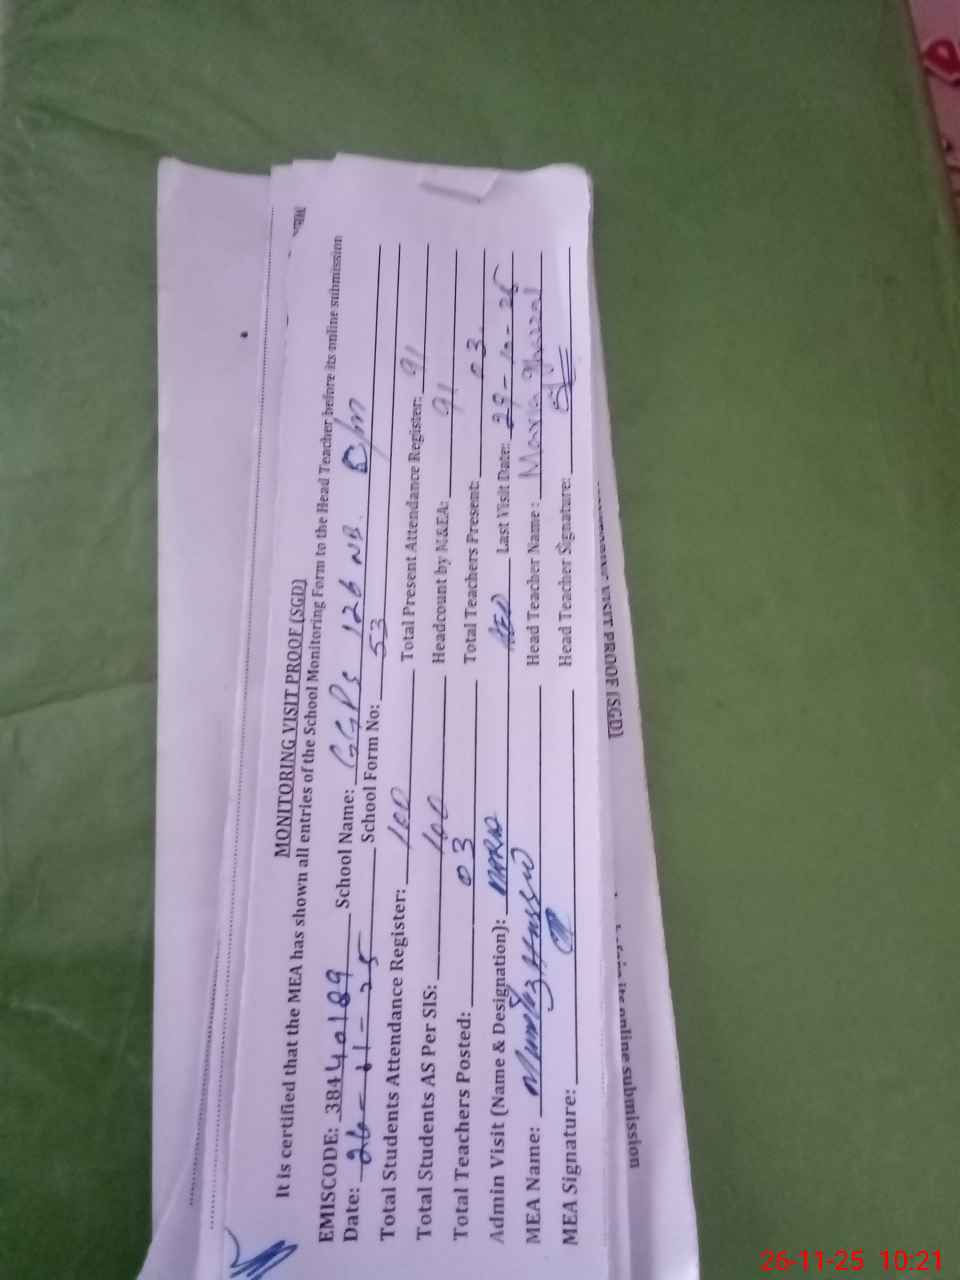 MONITORING VISIT PROOF (SGD)
It is certified that the MEA has shown all entries of the School Monitoring Form to the Head Teacher before its online submission
EMISCODE: 38440189 School Name: GGPS 126 NB.
Date: 26-11-25 School Form No: 53
Total Students Attendance Register: 100 Total Present Attendance Register: 91
Total Students AS Per SIS: 100 Headcount by M&EA: 91
Total Teachers Posted: 03 Total Teachers Present: 03.
Admin Visit (Name & Designation): AEO Last Visit Date: 29-10-25
MEA Name: Mumtaz Hussain Head Teacher Name: Maria
MEA Signature: Head Teacher Signature:
PROOF (SGD)
its online submission
26-11-25 10:21